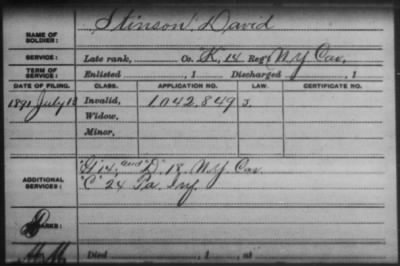 NAME OF SOLDIER: Stinson, David
SERVICE: Late rank, Co. K, 14 Reg't N.Y. Cav.
TERM OF SERVICE: Enlisted , 1 Discharged , 1
DATE OF FILING. CLASS. APPLICATION NO. LAW. CERTIFICATE NO.
1891 July Invalid, 1.042.849
Widow,
Minor,
ADDITIONAL SERVICES: "G" 14, and "D" 18. N.Y. Cav.
"C" 24 Pa. Inf
REMARKS:
Died , 1 , at